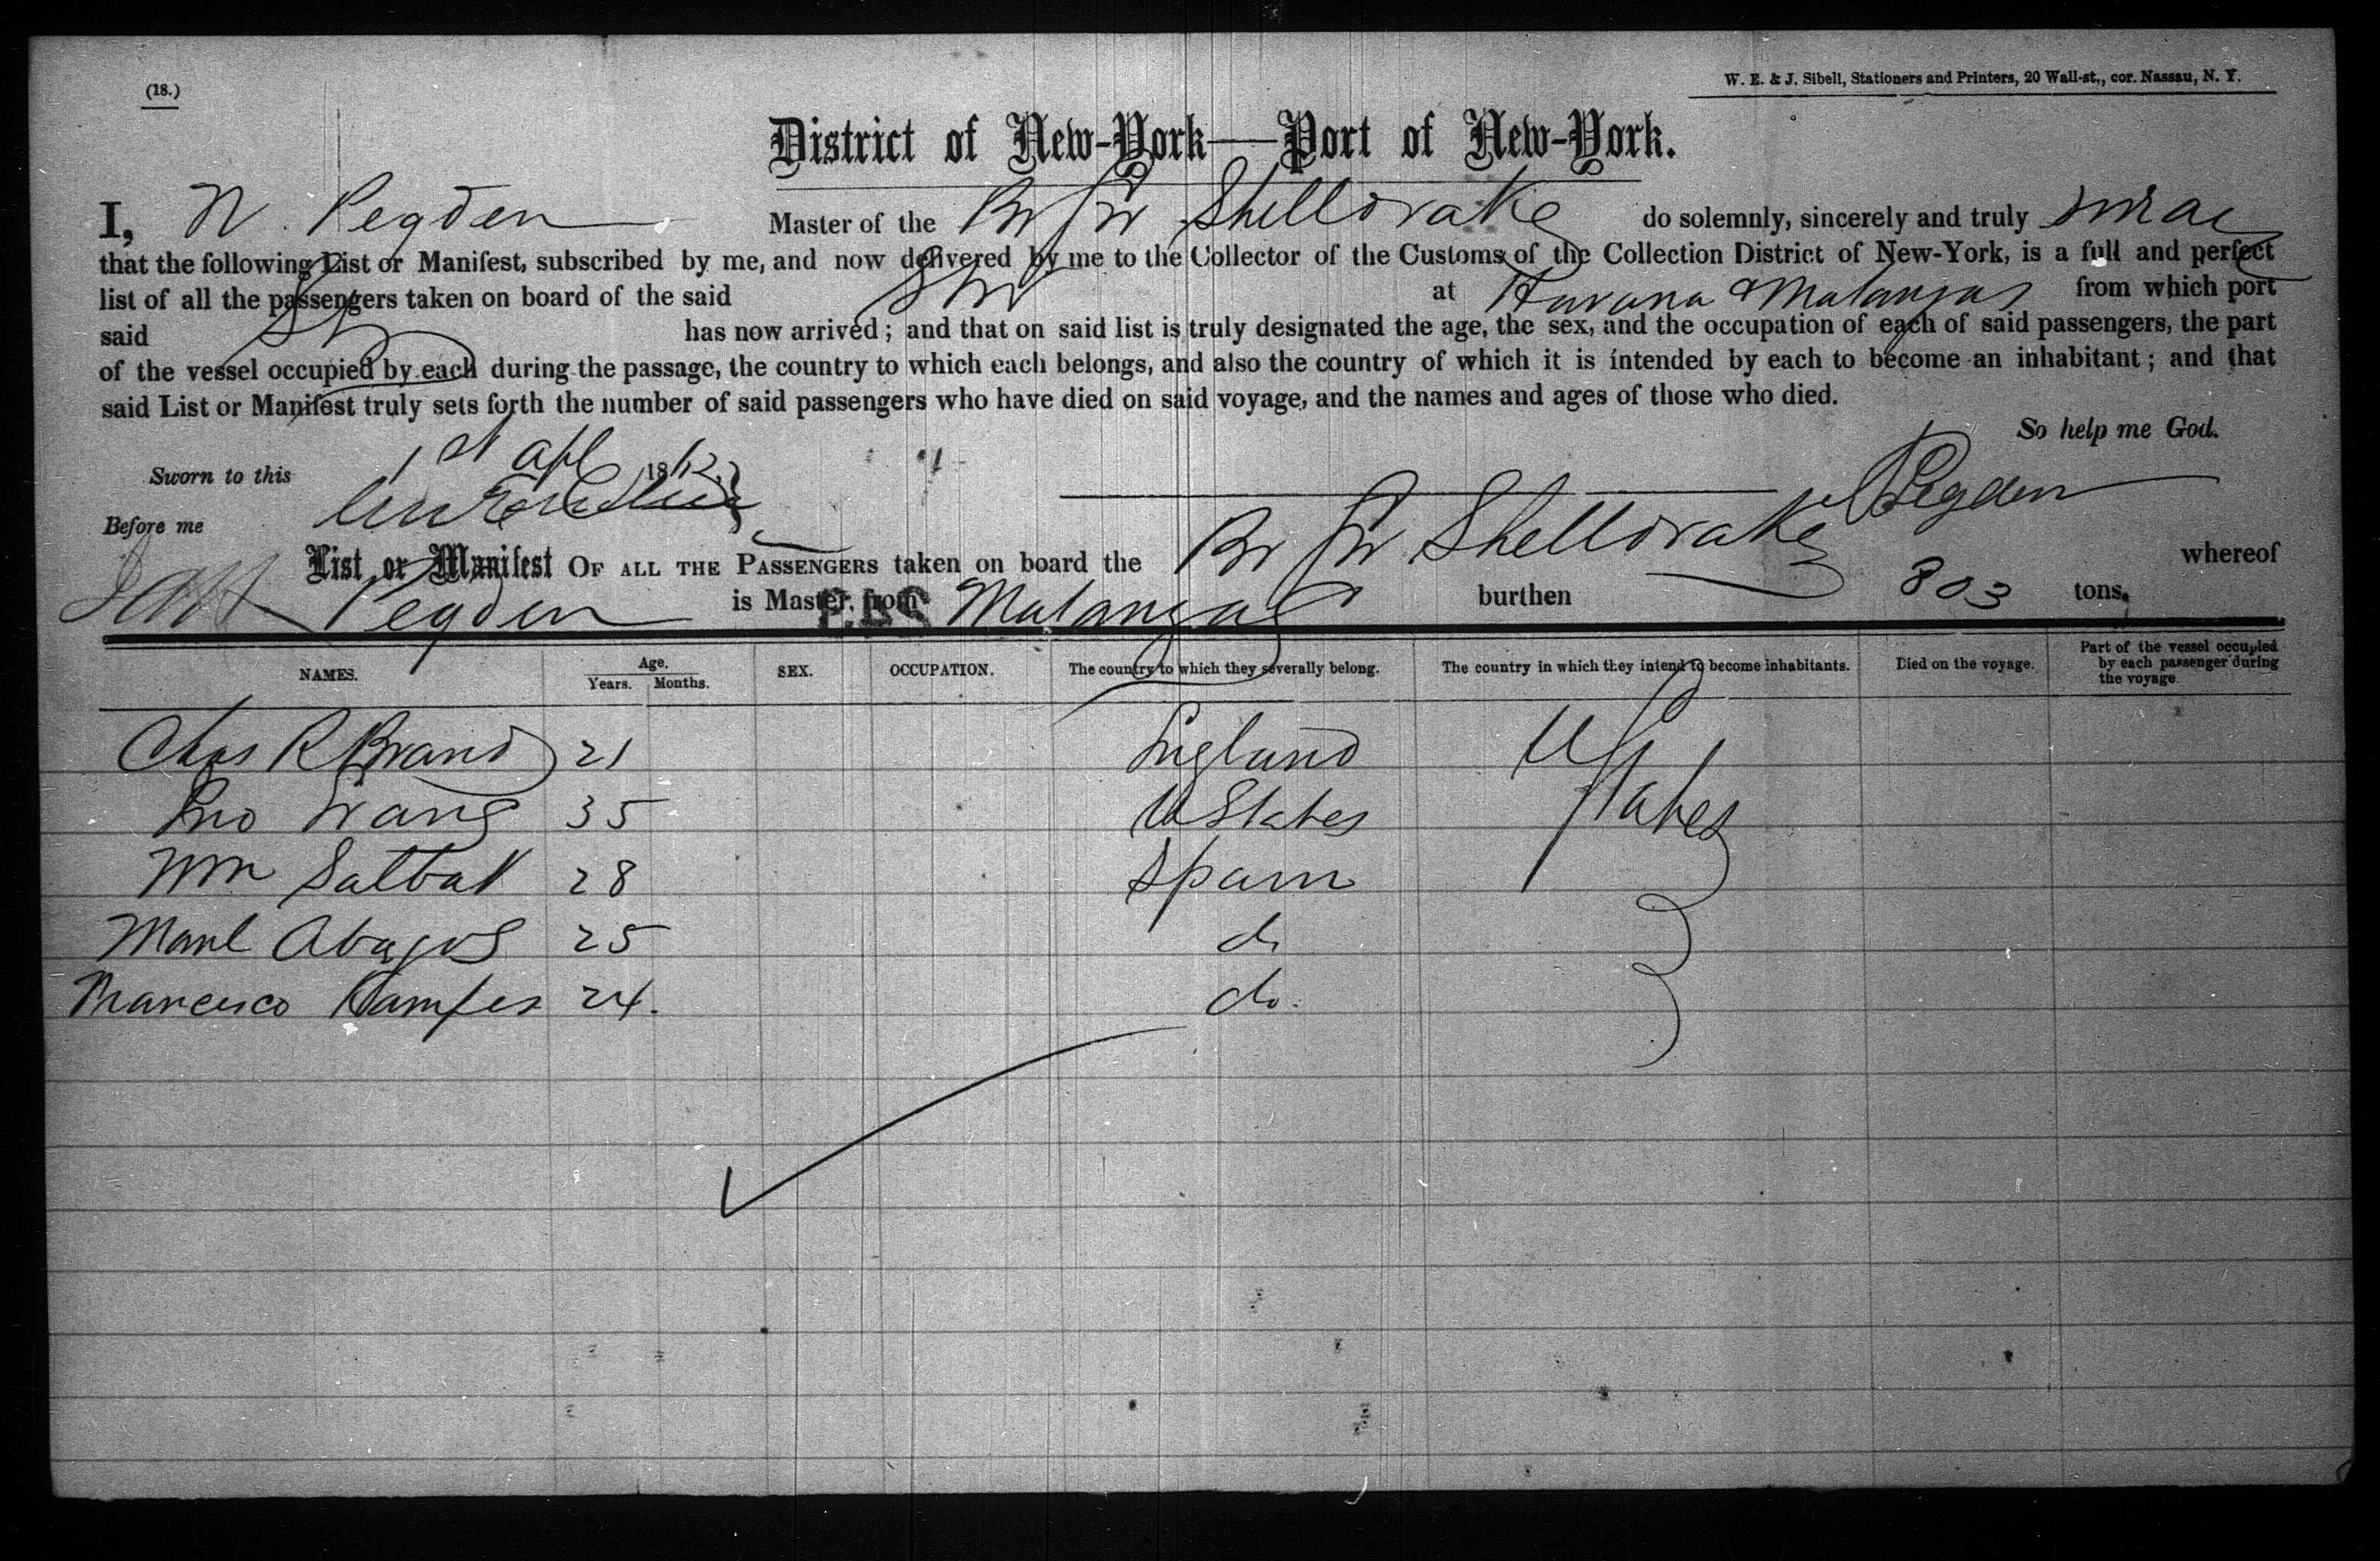 (18.)
W. E. & J. Sibell, Stationers and Printers, 20 Wall-st., cor. Nassau, N. Y.
District of New-York—Port of New-York.
I, N. Pegden Master of the Br Str Shelldrake do solemnly, sincerely and truly swear
that the following List or Manifest, subscribed by me, and now delivered by me to the Collector of the Customs of the Collection District of New-York, is a full and perfect
list of all the passengers taken on board of the said Str at Havana & Matanzas from which port
said Str has now arrived; and that on said list is truly designated the age, the sex, and the occupation of each of said passengers, the part
of the vessel occupied by each during the passage, the country to which each belongs, and also the country of which it is intended by each to become an inhabitant; and that
said List or Manifest truly sets forth the number of said passengers who have died on said voyage, and the names and ages of those who died.
So help me God.
Sworn to this 1st Apl 1862
Pegden
Before me
List or Manifest OF ALL THE PASSENGERS taken on board the Br Str Shelldrake whereof
Pegden is Master, from Matanzas burthen 803 tons.
NAMES. Age. Years. Months. SEX. OCCUPATION. The country to which they severally belong. The country in which they intend to become inhabitants. Died on the voyage. Part of the vessel occupied by each passenger during the voyage
Chas R Brand 21 England U States
Jno Evans 35 U States
Wm 28 Spain
Manl 25 do
Francisco 24. do.